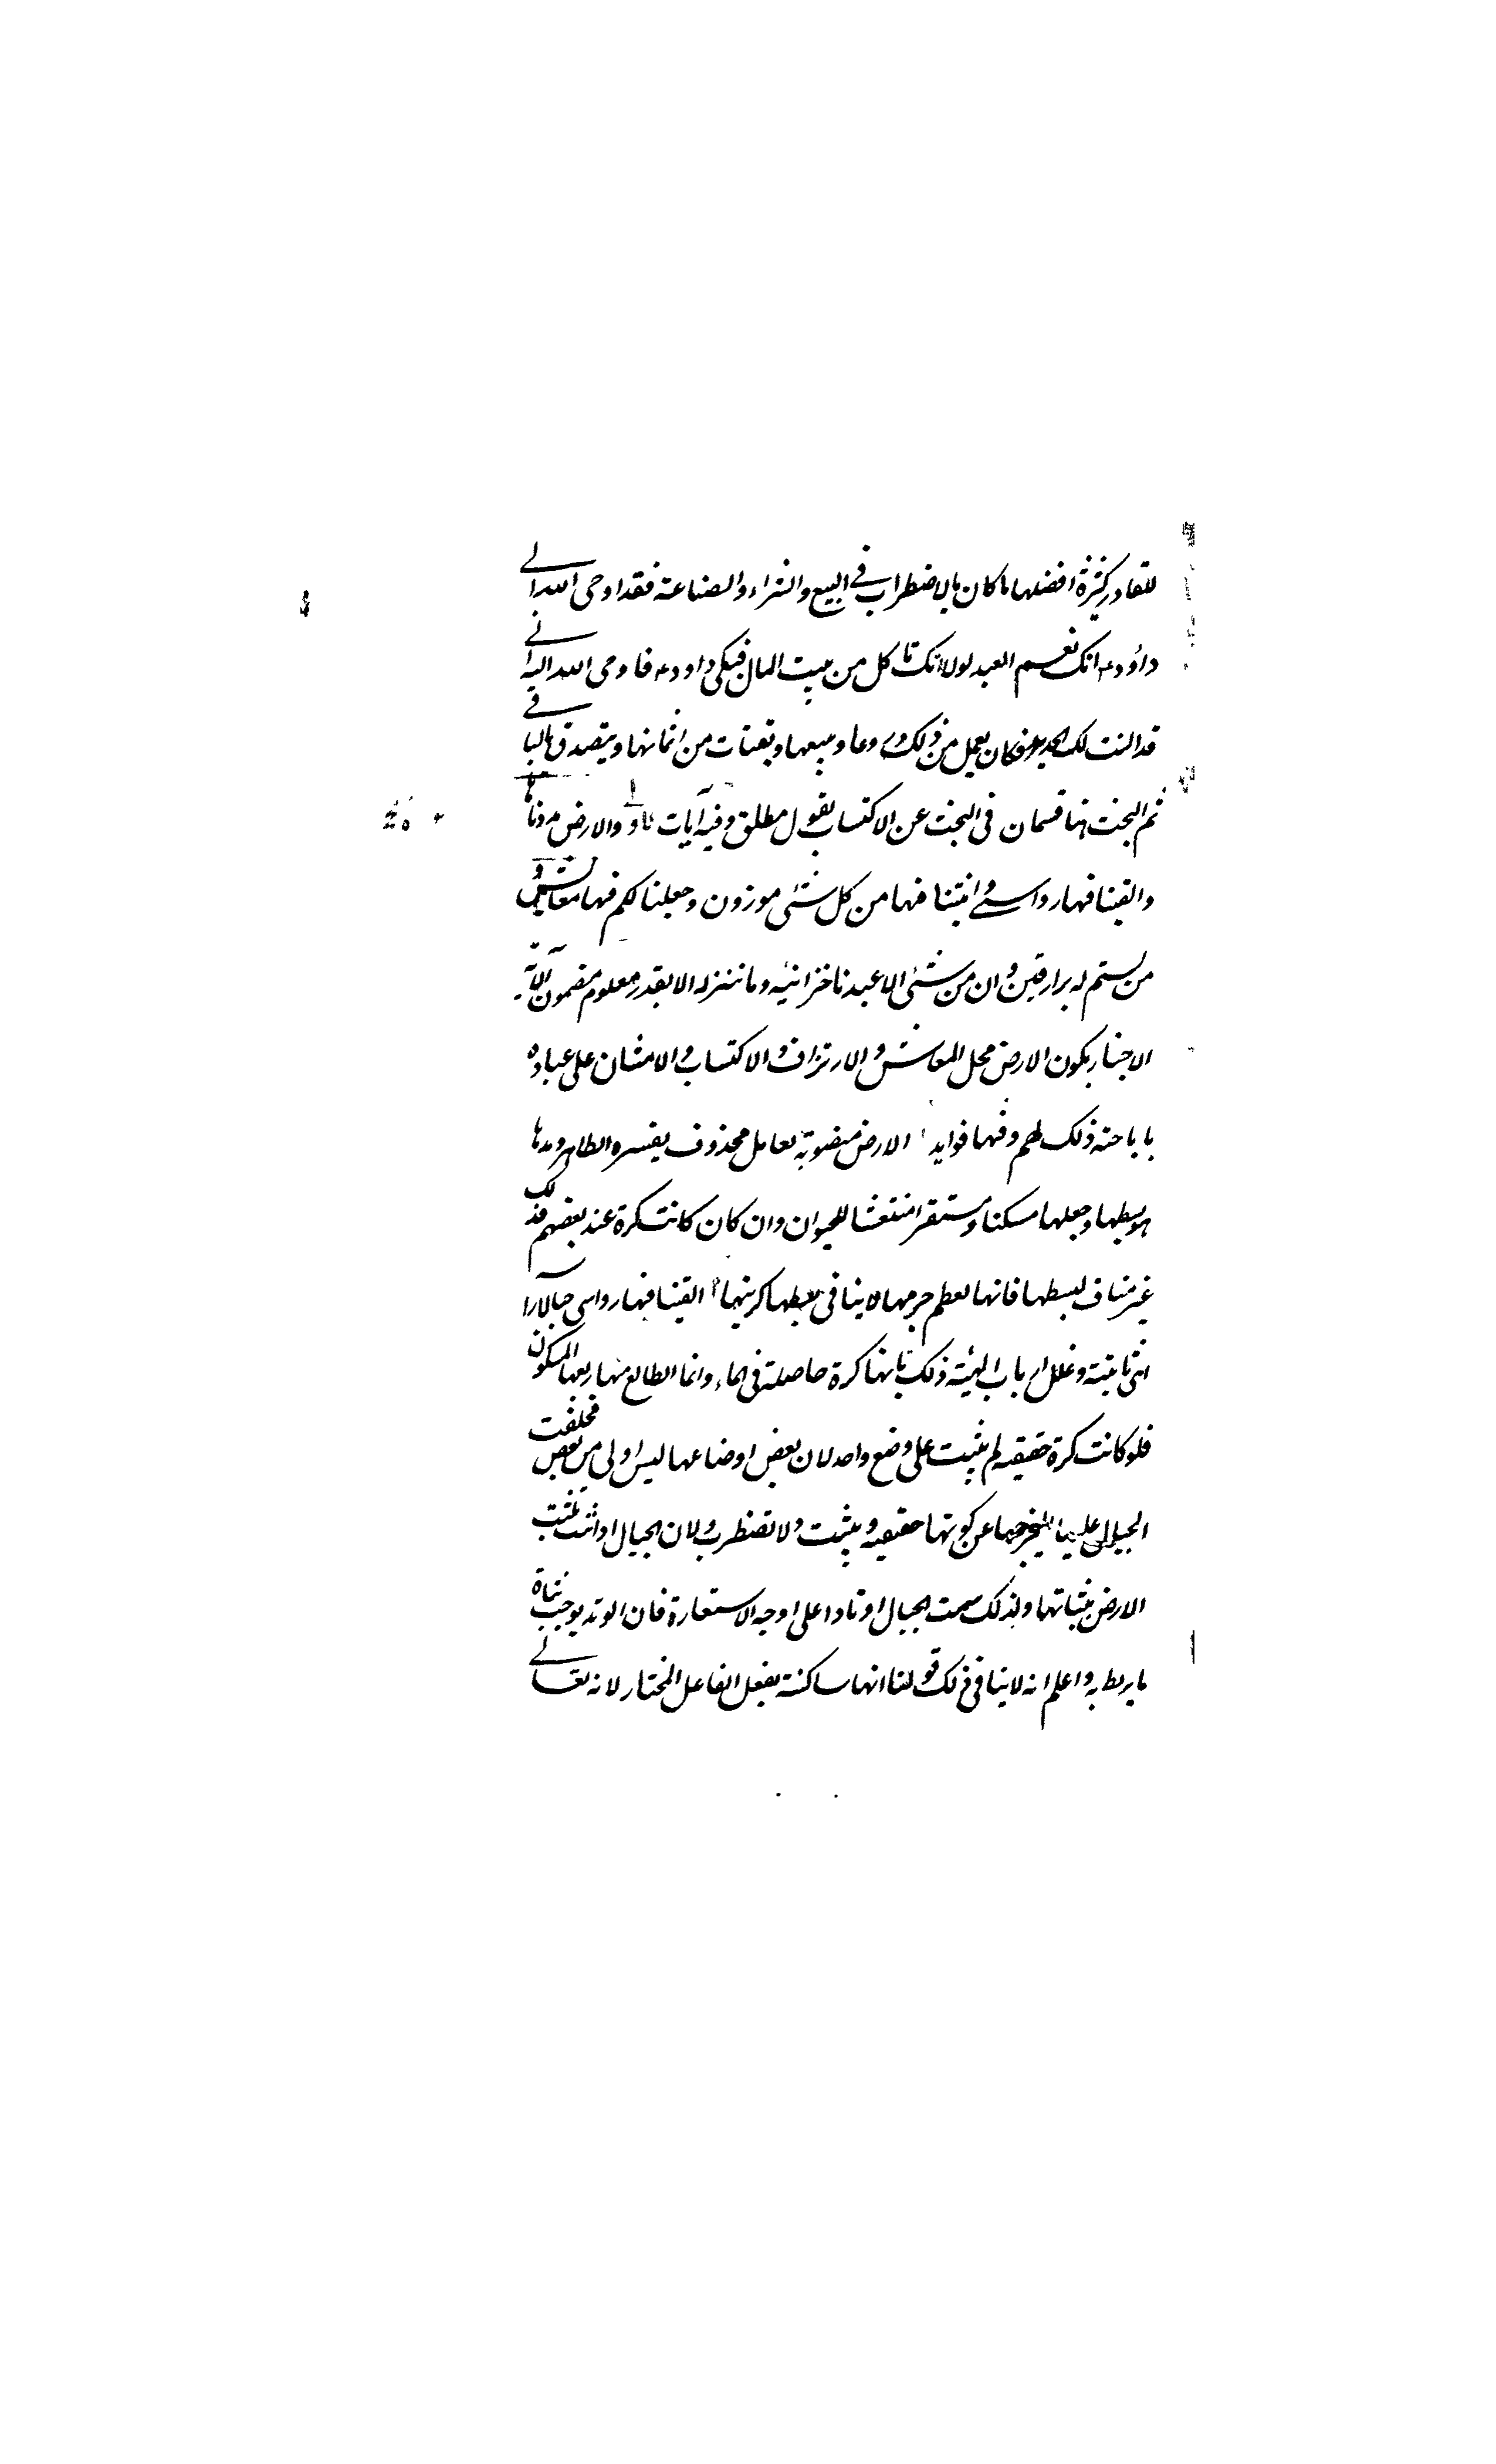 للقادر كثيرة افضلها ما كان بالاضطراب في البيع والشراء والصناعة فقد اوحى الله الى
داؤد ع انك نعم العبد لولا انك تاكل من بيت المال فبكى داود ع فاوحى الله اليه اني
قد النت لك الحديد فكان يعمل من ذلك دروعا ويبيعها ويقتات من اثمانها ويتصدق بالباقي
ثم البحث هنا قسمان في البحث عن الاكتساب بقول مطلق وفيه آيات والارض مددناها
والقينا فيها رواسي وانبتنا فيها من كل شئ موزون وجعلنا لكم فيها معايش و
من لستم له برازقين وان من شئ الا عندنا خزائنه وما ننزله الا بقدر معلوم مضمون الآية
الاخبار بكون الارض محل المعاش والارتزاق والاكتساب والامتنان على عباده
باباحته ذلك لهم وفيها فوايد ا الارض منصوبة بعامل محذوف يفسره الظاهر ومدها
هو بسطها وجعلها مسكنا ومستقرا للحيوان وان كان كانت كرة عند بعضهم فذلك
غير مناف لبسطها فانها لعظم جرمها لا ينافي بسطها كريتها القينا فيها رواسي جبالا
اى ثابتة وعلل ارباب الهيئة ذلك بانها كرة حاصلة في الماء وانما الطالع منها ربعها المسكون
فلو كانت كرة حقيقيه لم يثبت على وضع واحد لان بعض اوضاعها ليس اولى من بعض فخلقت
الجبال عليها ليخرجها عن كونها حقيقيه ويثبت ولا تضطرب ولان الجبال اذا ثبت تثبت
الارض بثباتها ولذلك سميت الجبال اوتادا على وجه الاستعارة فان الوتد يوجب ثبات
ما يربط به واعلم انه لا ينافي ذلك قولنا انها ساكنة بفعل الفاعل المختار لانه تعالى